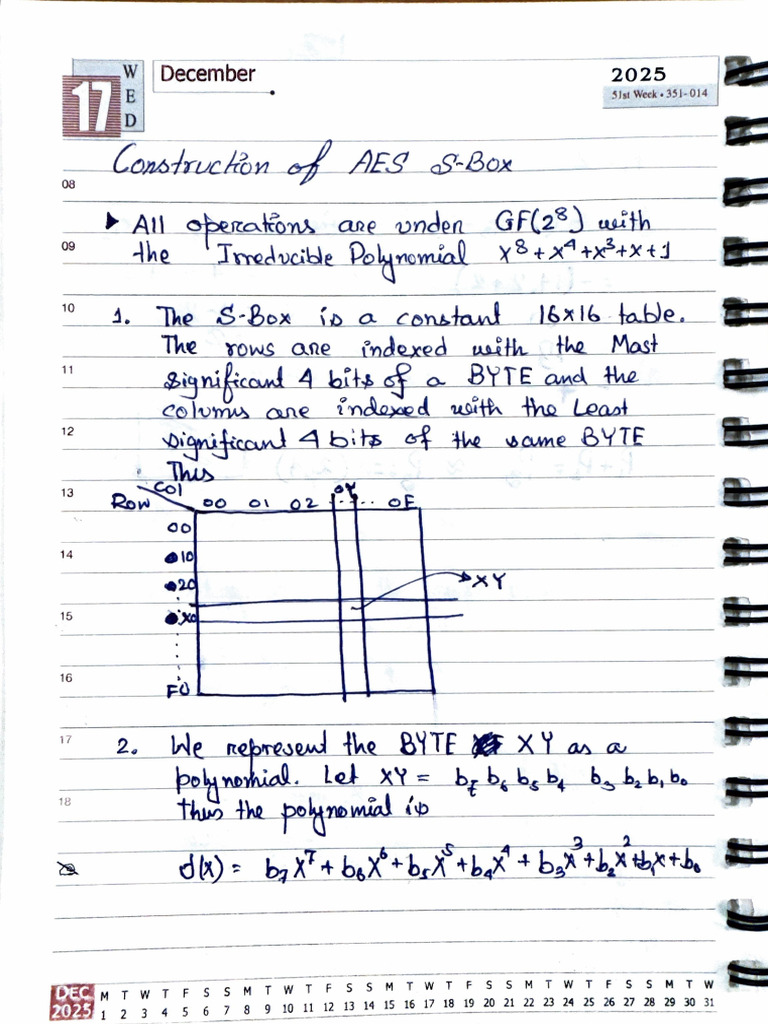 WED
17
December
2025
51st Week • 351-014
Construction of AES S-Box
08
▶ All operations are under GF(2⁸) with
09
the Irreducible Polynomial x⁸+x⁴+x³+x+1
10
1. The S-Box is a constant 16×16 table.
The rows are indexed with the Mast
11
significant 4 bits of a BYTE and the
columns are indexed with the Least
12
significant 4 bits of the same BYTE
This
13
Col
Row 00 01 02 0Y ... 0F
00
14
10
20
XY
15
X0
16
F0
17
2. We represent the BYTE XY as a
polynomial. Let XY = b₇ b₆ b₅ b₄ b₃ b₂ b₁ b₀
18
thus the polynomial is
d(x) = b₇x⁷+b₆x⁶+b₅x⁵+b₄x⁴+b₃x³+b₂x²+b₁x+b₀
DEC M T W T F S S M T W T F S S M T W T F S S M T W T F S S M T W
2025 1 2 3 4 5 6 7 8 9 10 11 12 13 14 15 16 17 18 19 20 21 22 23 24 25 26 27 28 29 30 31